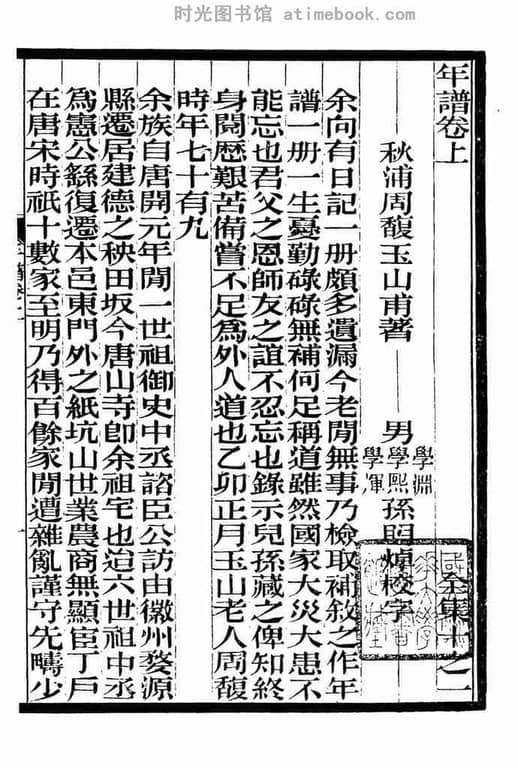 时光图书馆 atimebook.com
年譜卷上
全集十之一
秋浦周馥玉山甫著
男學淵學熙學煇孫明焯校字
余向有日記一册頗多遺漏今老閒無事乃檢取補敘之作年
譜一册一生憂勤碌碌無補何足稱道雖然國家大災大患不
能忘也君父之恩師友之誼不忍忘也錄示兒孫藏之俾知終
身閱歷艱苦備嘗不足為外人道也乙卯正月玉山老人周馥
時年七十有九
余族自唐開元年閒一世祖御史中丞諮臣公訪由徽州婺源
縣遷居建德之秧田坂今唐山寺卽余祖宅也迨六世祖中丞
為憲公繇復遷本邑東門外之紙坑山世業農商無顯宦丁戶
在唐宋時祇十數家至明乃得百餘家閒遭雜亂謹守先疇少